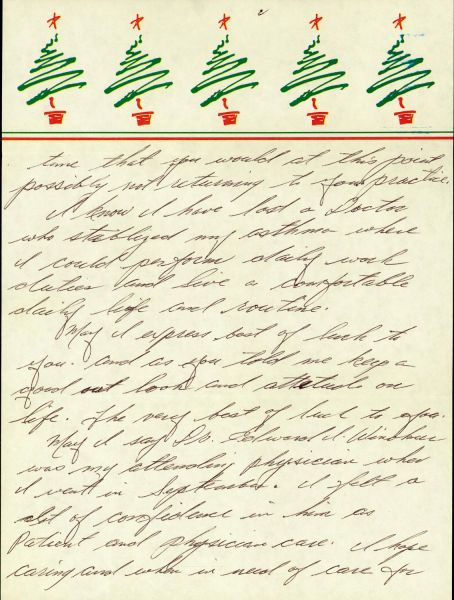 2
time that you would at this point
possibly not returning to your practice.
I know I have lost a Doctor
who stablized my asthma where
I could perform daily work
duties and live a comfortable
daily life and routine.
May I express best of luck to
you. And as you told me keep a
good out look and attitude on
life. The very best of luck to you.
May I say Dr. Edward
was my attending physician when
I went in September. I felt a
lot of confidence in him as
Patient and physician care. I hope
caring and when in need of care for